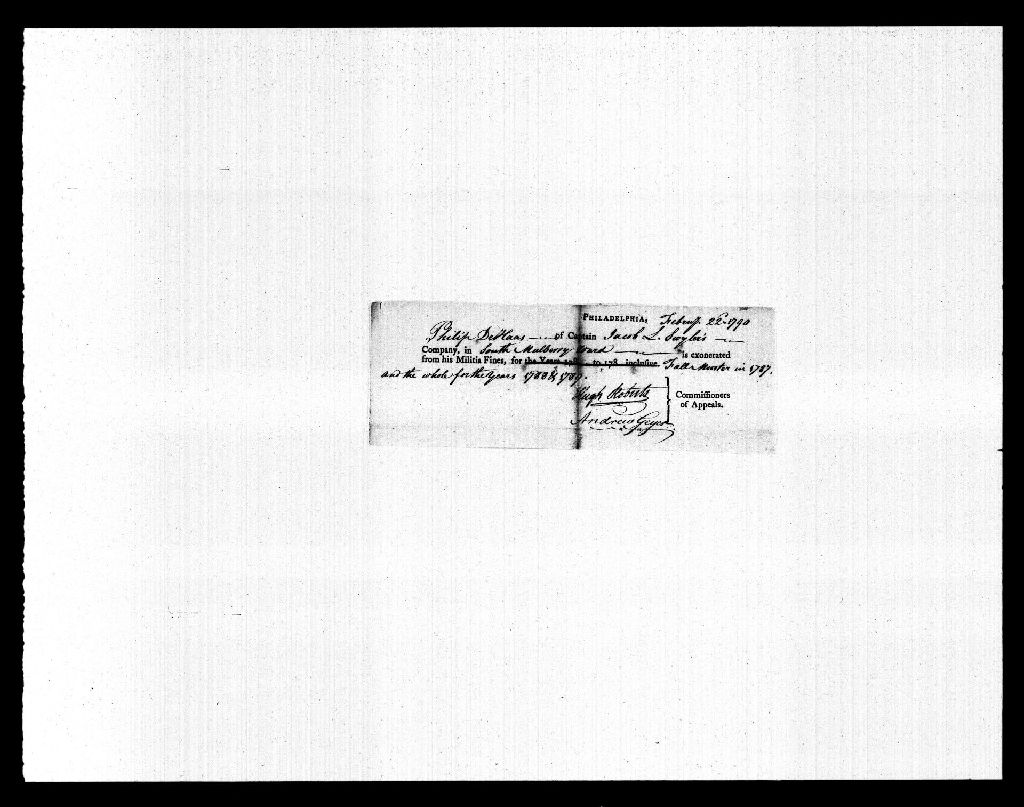 PHILADELPHIA, Februy. 22d. 1790
Philip DeHaas of Captain Jacob L.
Company, in South Mulberry Ward is exonerated
from his Militia Fines, for the Years 178 to 178 inclusive. Fall Muster in 1787.
and the whole for the Years 1788 & 1789.
Hugh Roberts
Commissioners
of Appeals.
Andrew Geyer